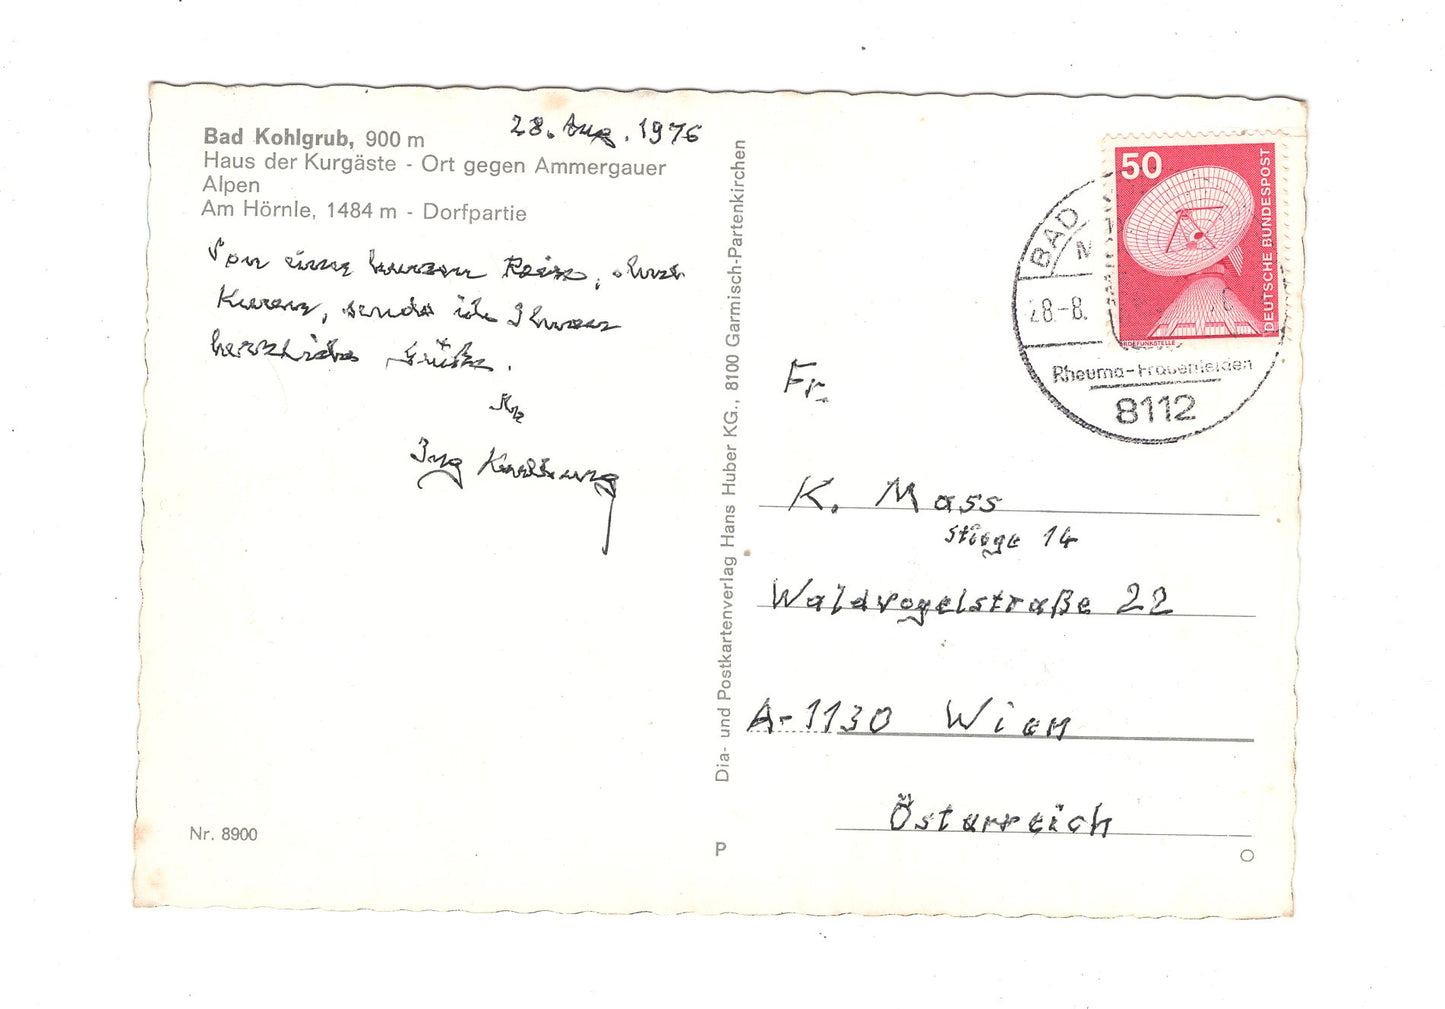 Bad Kohlgrub, 900 m
28. Aug. 1976
Haus der Kurgäste - Ort gegen Ammergauer
Alpen
Am Hörnle, 1484 m - Dorfpartie
Von einer kurzen Reise, ohne
Kuren, sende ich Ihnen
herzliche Grüße.
Ihr
Ing
Nr. 8900
Dia- und Postkartenverlag Hans Huber KG., 8100 Garmisch-Partenkirchen
P
50
DEUTSCHE BUNDESPOST
ERDEFUNKSTELLE
BAD
28.-8.
Rheuma-Frauenleiden
8112
Fr.
K. Mass
Stiege 14
Waldvogelstraße 22
A-1130 Wien
Österreich